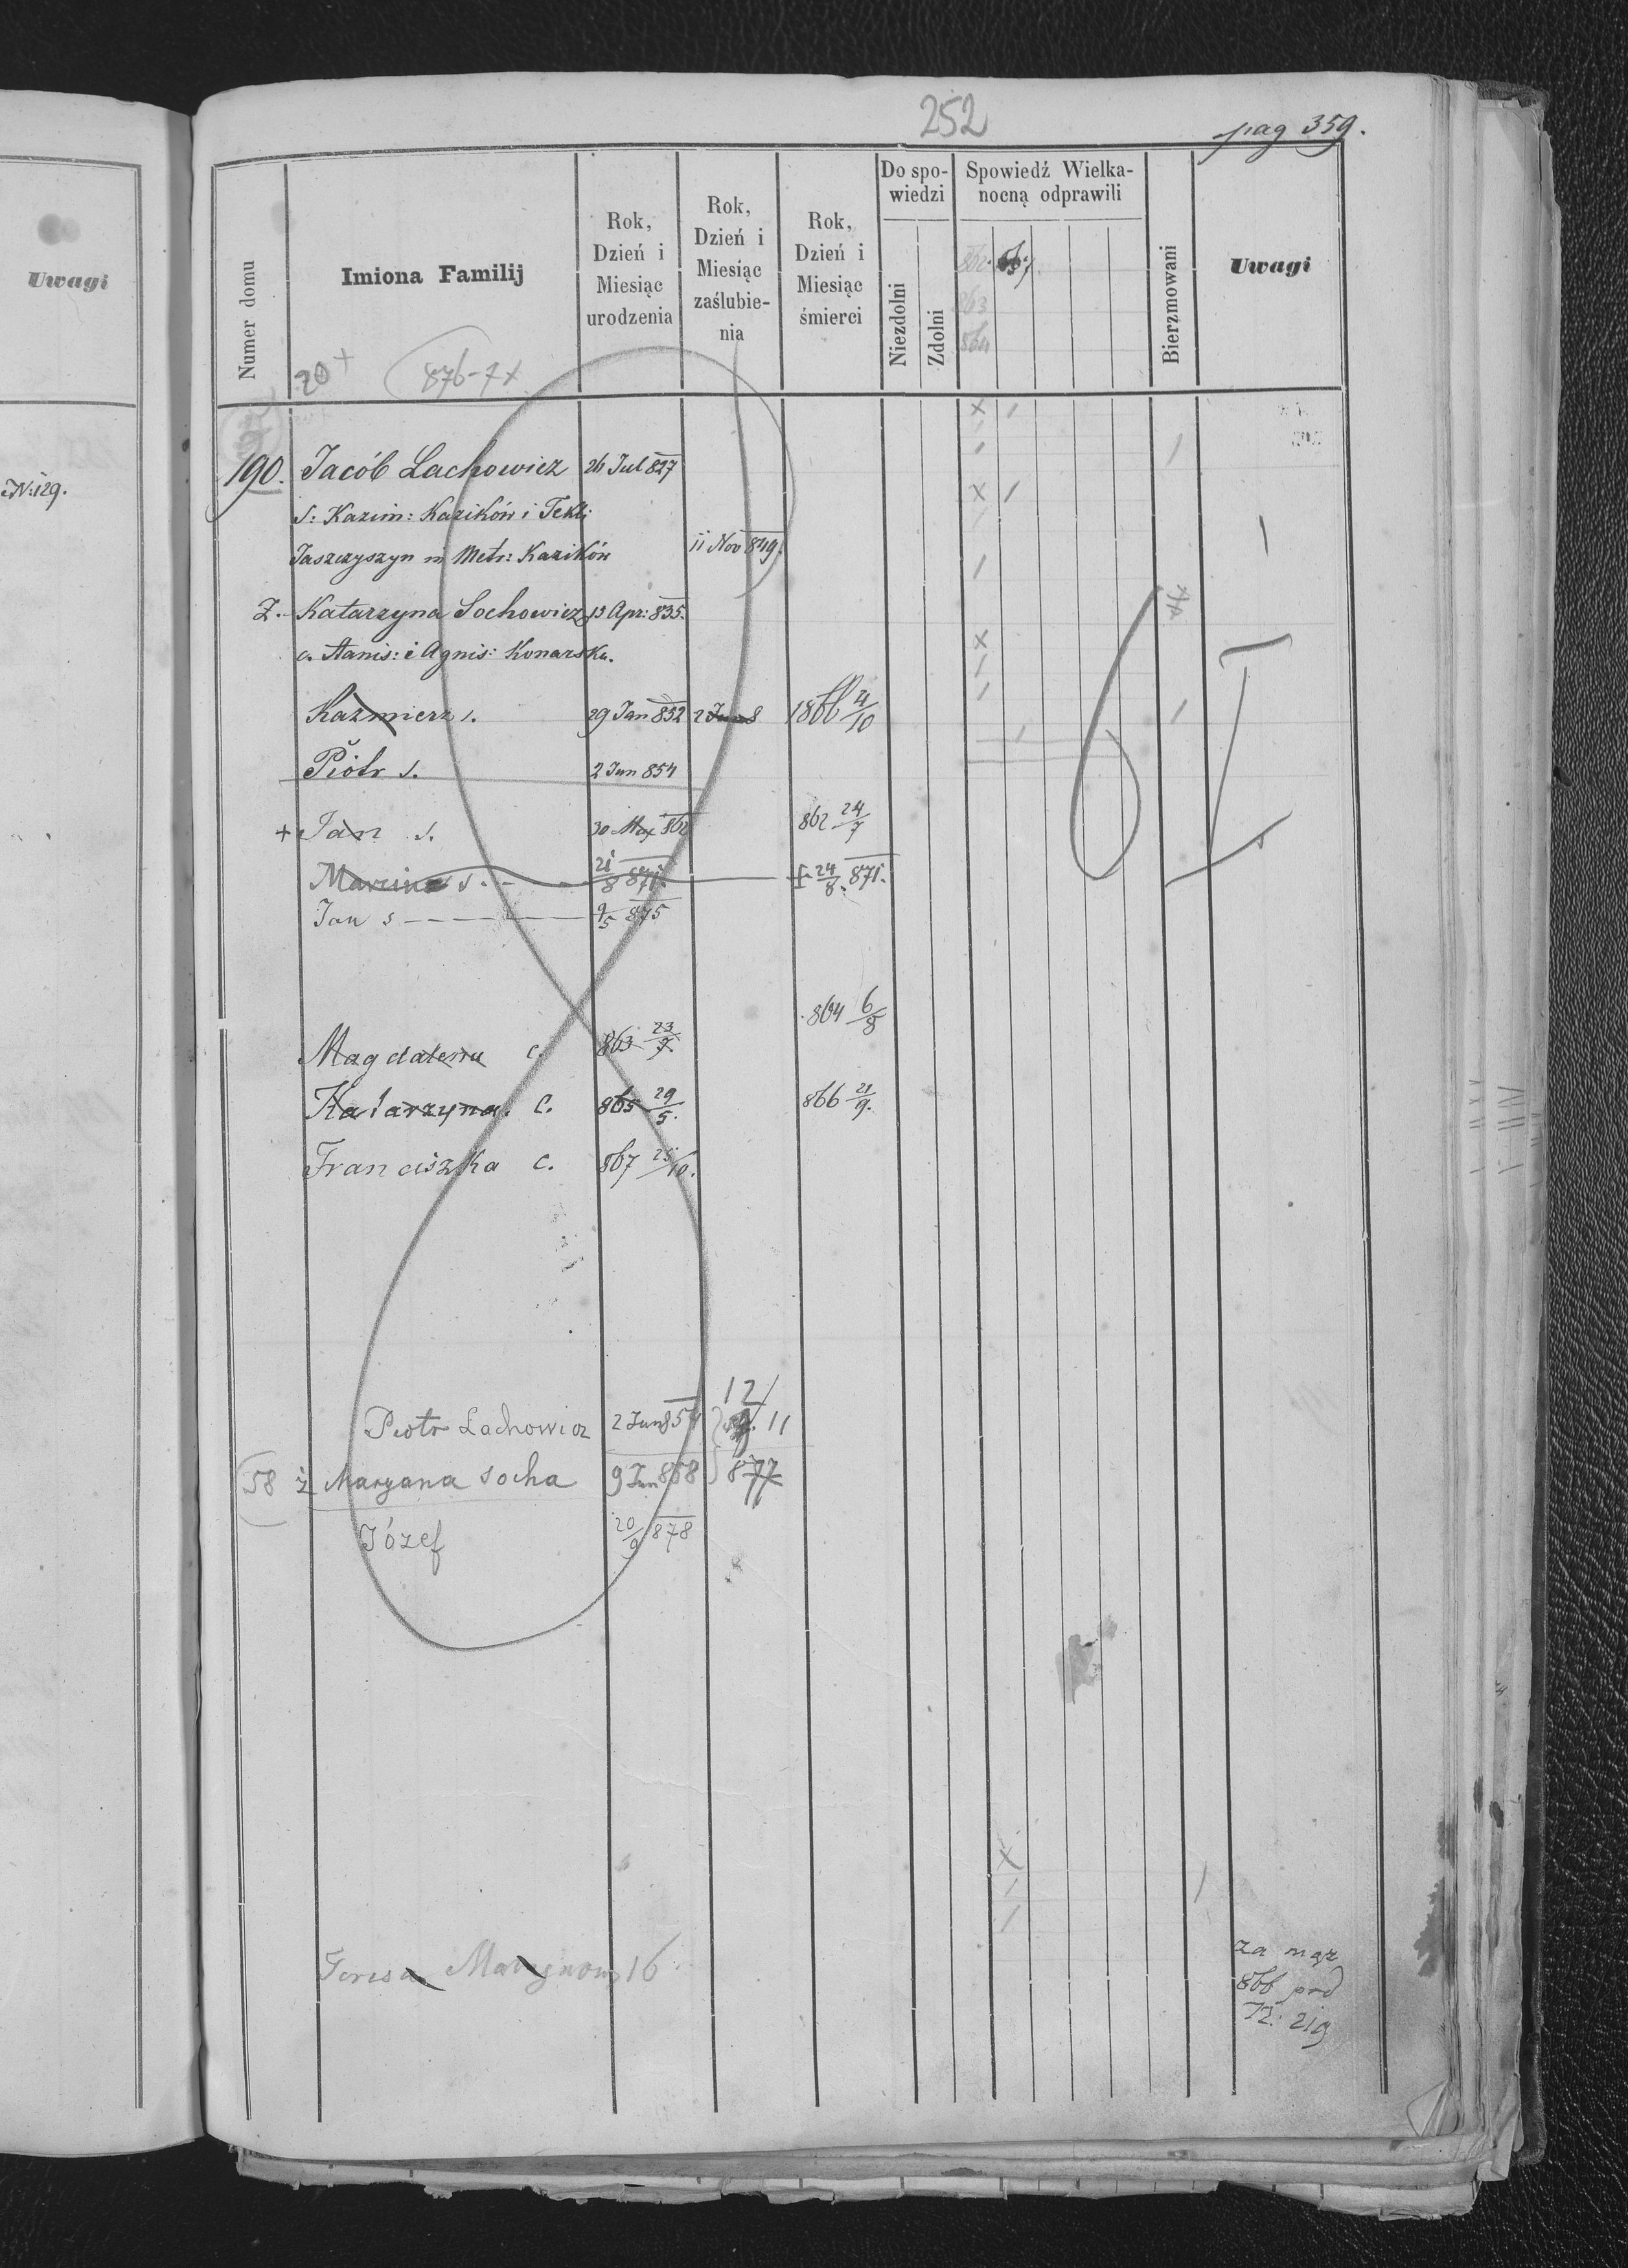 252
pag 359.
Uwagi
N: 129.
Numer domu
Imiona Familij
Rok, Dzień i Miesiąc urodzenia
Rok, Dzień i Miesiąc zaślubienia
Rok, Dzień i Miesiąc śmierci
Do spowiedzi
Niezdolni
Zdolni
Spowiedź Wielkanocną odprawili
862
863
864
Bierzmowani
Uwagi
20 +
876-7x
190. Jacób Lachowicz 26 Jul 827
S: Kazim: Kazików i Tekli
Jaszczyszyn Metr: Kazików 11 Nov 849.
Ż. Katarzyna Sochowicz 13 Apr: 835.
c. Stanis: i Agnis: Konarska.
Kaźmierz s. 29 Jan 852 1866 4/10
Piotr s. 2 Jun 854
+ Jan s. 30 May 862 862 24/7
Marcin s. 21/8 871. + 24/8. 871.
Jan s 9/5 875
864 6/8
Magdalena c. 863 23/7.
Katarzyna. C. 865 29/5. 866 21/9.
Franciszka c. 867 25/10.
12/
Piotr Lachowicz 2 Jun 854 11
58 ż Maryana Socha 9 Jan 858 877
Józef 20/9 878
Teresa 16
za mąż
866 pod
N: 219